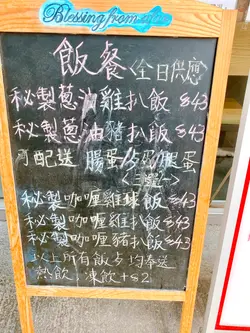 Blessing from
飯餐<全日供應>
秘製葱油雞扒飯 $43
秘製葱油豬扒飯 $43
可配送 腸蛋/腿蛋
秘製咖喱雞球飯 $43
秘製咖喱雞扒飯 $43
秘製咖喱豬扒飯 $43
以上所有飯歺均奉送
熱飲,凍飲+$2